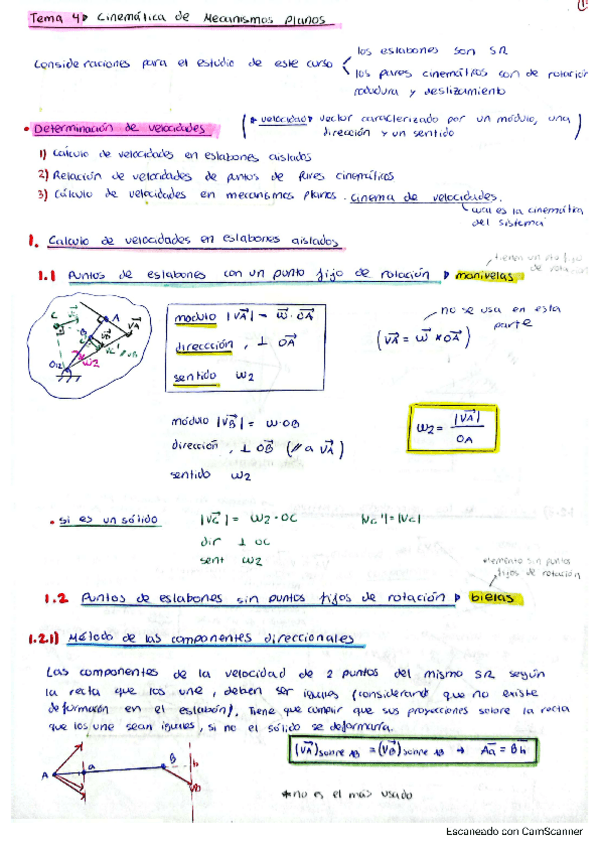 Tema 4 Cinemática de Mecanismos planos
Consideraciones para el estudio de este curso
los eslabones son SR
los pares cinemáticos son de rotación
rodadura y deslizamiento
• Determinación de velocidades
(* velocidad vector caracterizado por un módulo, una
dirección y un sentido
1) Cálculo de velocidades en eslabones aislados
2) Relación de velocidades de puntos de pares cinemáticos
3) Cálculo de velocidades en mecanismos planos. cinema de velocidades.
cual es la cinemática
del sistema
1. Calculo de velocidades en eslabones aislados
tienen un pto fijo
de rotación
1.1 Puntos de eslabones con un punto fijo de rotación manivelas
modulo |VA| = ω · OA
dirección, ⊥ OA
sentido ω2
no se usa en esta
parte
(VA = ω × OA)
módulo |VB| = ω·OB
dirección, ⊥ OB (// a VA)
sentido ω2
ω2 = |VA| / OA
• si es un sólido |VC| = ω2 · OC |VC'| = |VC|
dir ⊥ OC
sent ω2
elemento sin puntos
fijos de rotación
1.2 Puntos de eslabones sin puntos fijos de rotación bielas
1.2.1) Método de las componentes direccionales
Las componentes de la velocidad de 2 puntos del mismo SR según
la recta que los une, deben ser iguales (considerando que no existe
deformación en el eslabón). Tiene que cumplir que sus proyecciones sobre la recta
que los une sean iguales, si no el sólido se deformaría.
(VA)sobre AB = (VB)sobre AB → Aa = Bb
A a B b VB
* no es el más usado
Escaneado con CamScanner